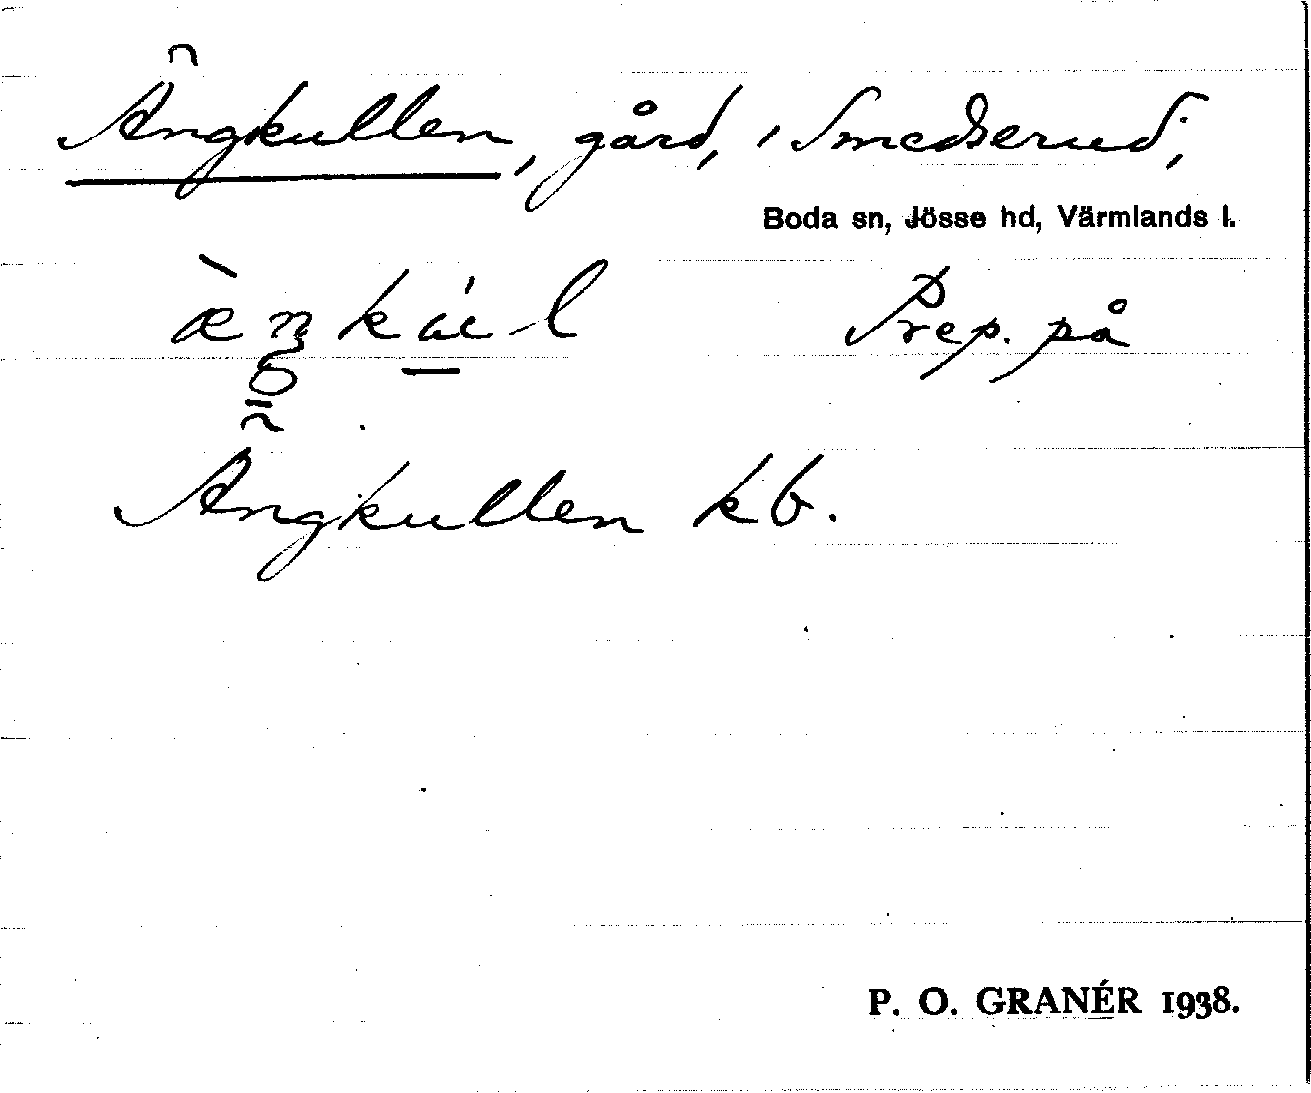 Ängkullen, gård, i Smedserud,
Boda sn, Jösse hd, Värmlands l.
Prep. på
Ängkullen kb.
P. O. GRANÉR 1938.